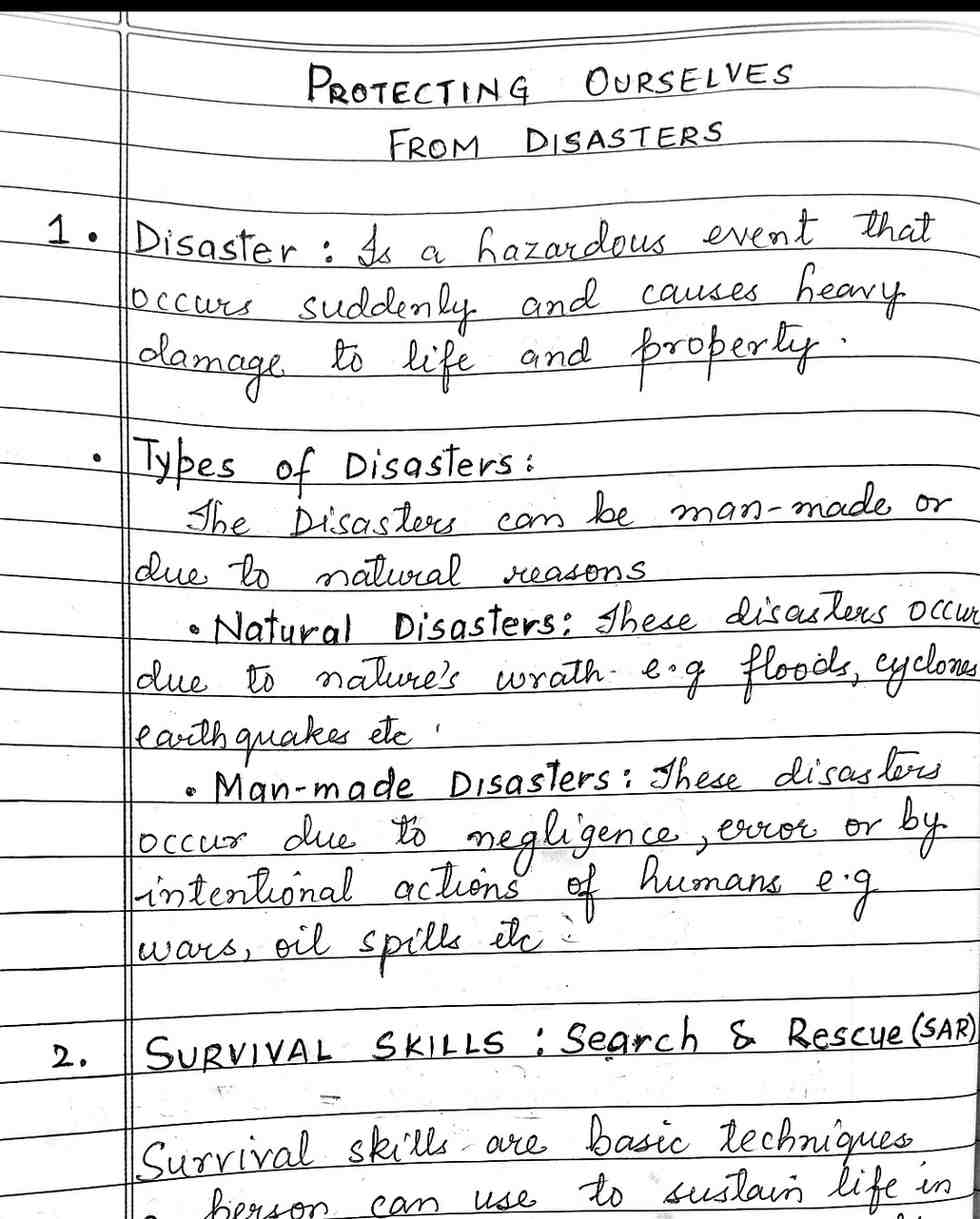 PROTECTING OURSELVES
FROM DISASTERS
1. Disaster : Is a hazardous event that
occurs suddenly and causes heavy
damage to life and property.
• Types of Disasters:
The Disasters can be man-made or
due to natural reasons
• Natural Disasters: These disasters occur
due to nature's wrath e.g floods, cyclones
earthquakes etc.
• Man-made Disasters: These disasters
occur due to negligence, error or by
intentional actions of humans e.g
wars, oil spills etc.
2. SURVIVAL SKILLS : Search & Rescue (SAR)
Survival skills are basic techniques
person can use to sustain life in